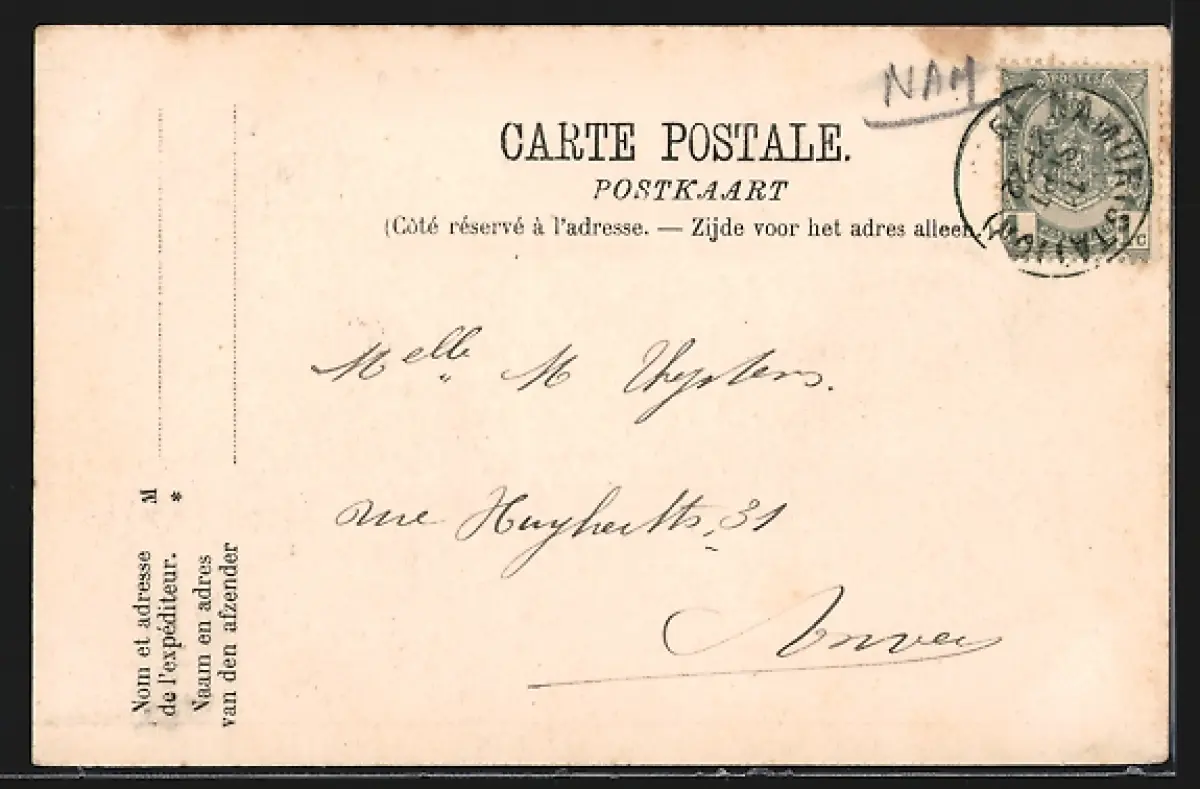 NAM
POSTES
NAMUR (STATION)
1 C
CARTE POSTALE.
POSTKAART
(Côté réservé à l'adresse. — Zijde voor het adres alleen.
Melle M
rue 31
Anvers
Nom et adresse M
de l'expéditeur. *
Naam en adres
van den afzender